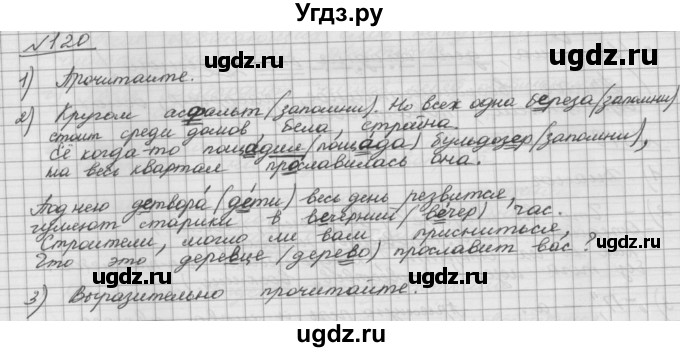 Угдз.ру
№120
1) Прочитайте.
2) Кругом асфальт (запомни). Но всех одна береза (запомни)
стоит среди домов, бела, стройна.
Её когда-то пощадил (пощада) бульдозер (запомни),
на весь квартал прославилась она.
Под нею детвора́ (де́ти) весь день резвится,
шумеют старики в вечерний (вечер) час.
Строители, могло ли вам присниться,
Что это деревце (дерево) прославит вас?
3) Выразительно прочитайте.
ugdz.ru
ugdz.ru
ugdz.ru
ugdz.ru
ugdz.ru
ugdz.ru
ugdz.ru
ugdz.ru
ugdz.ru
ugdz.ru
ugdz.ru